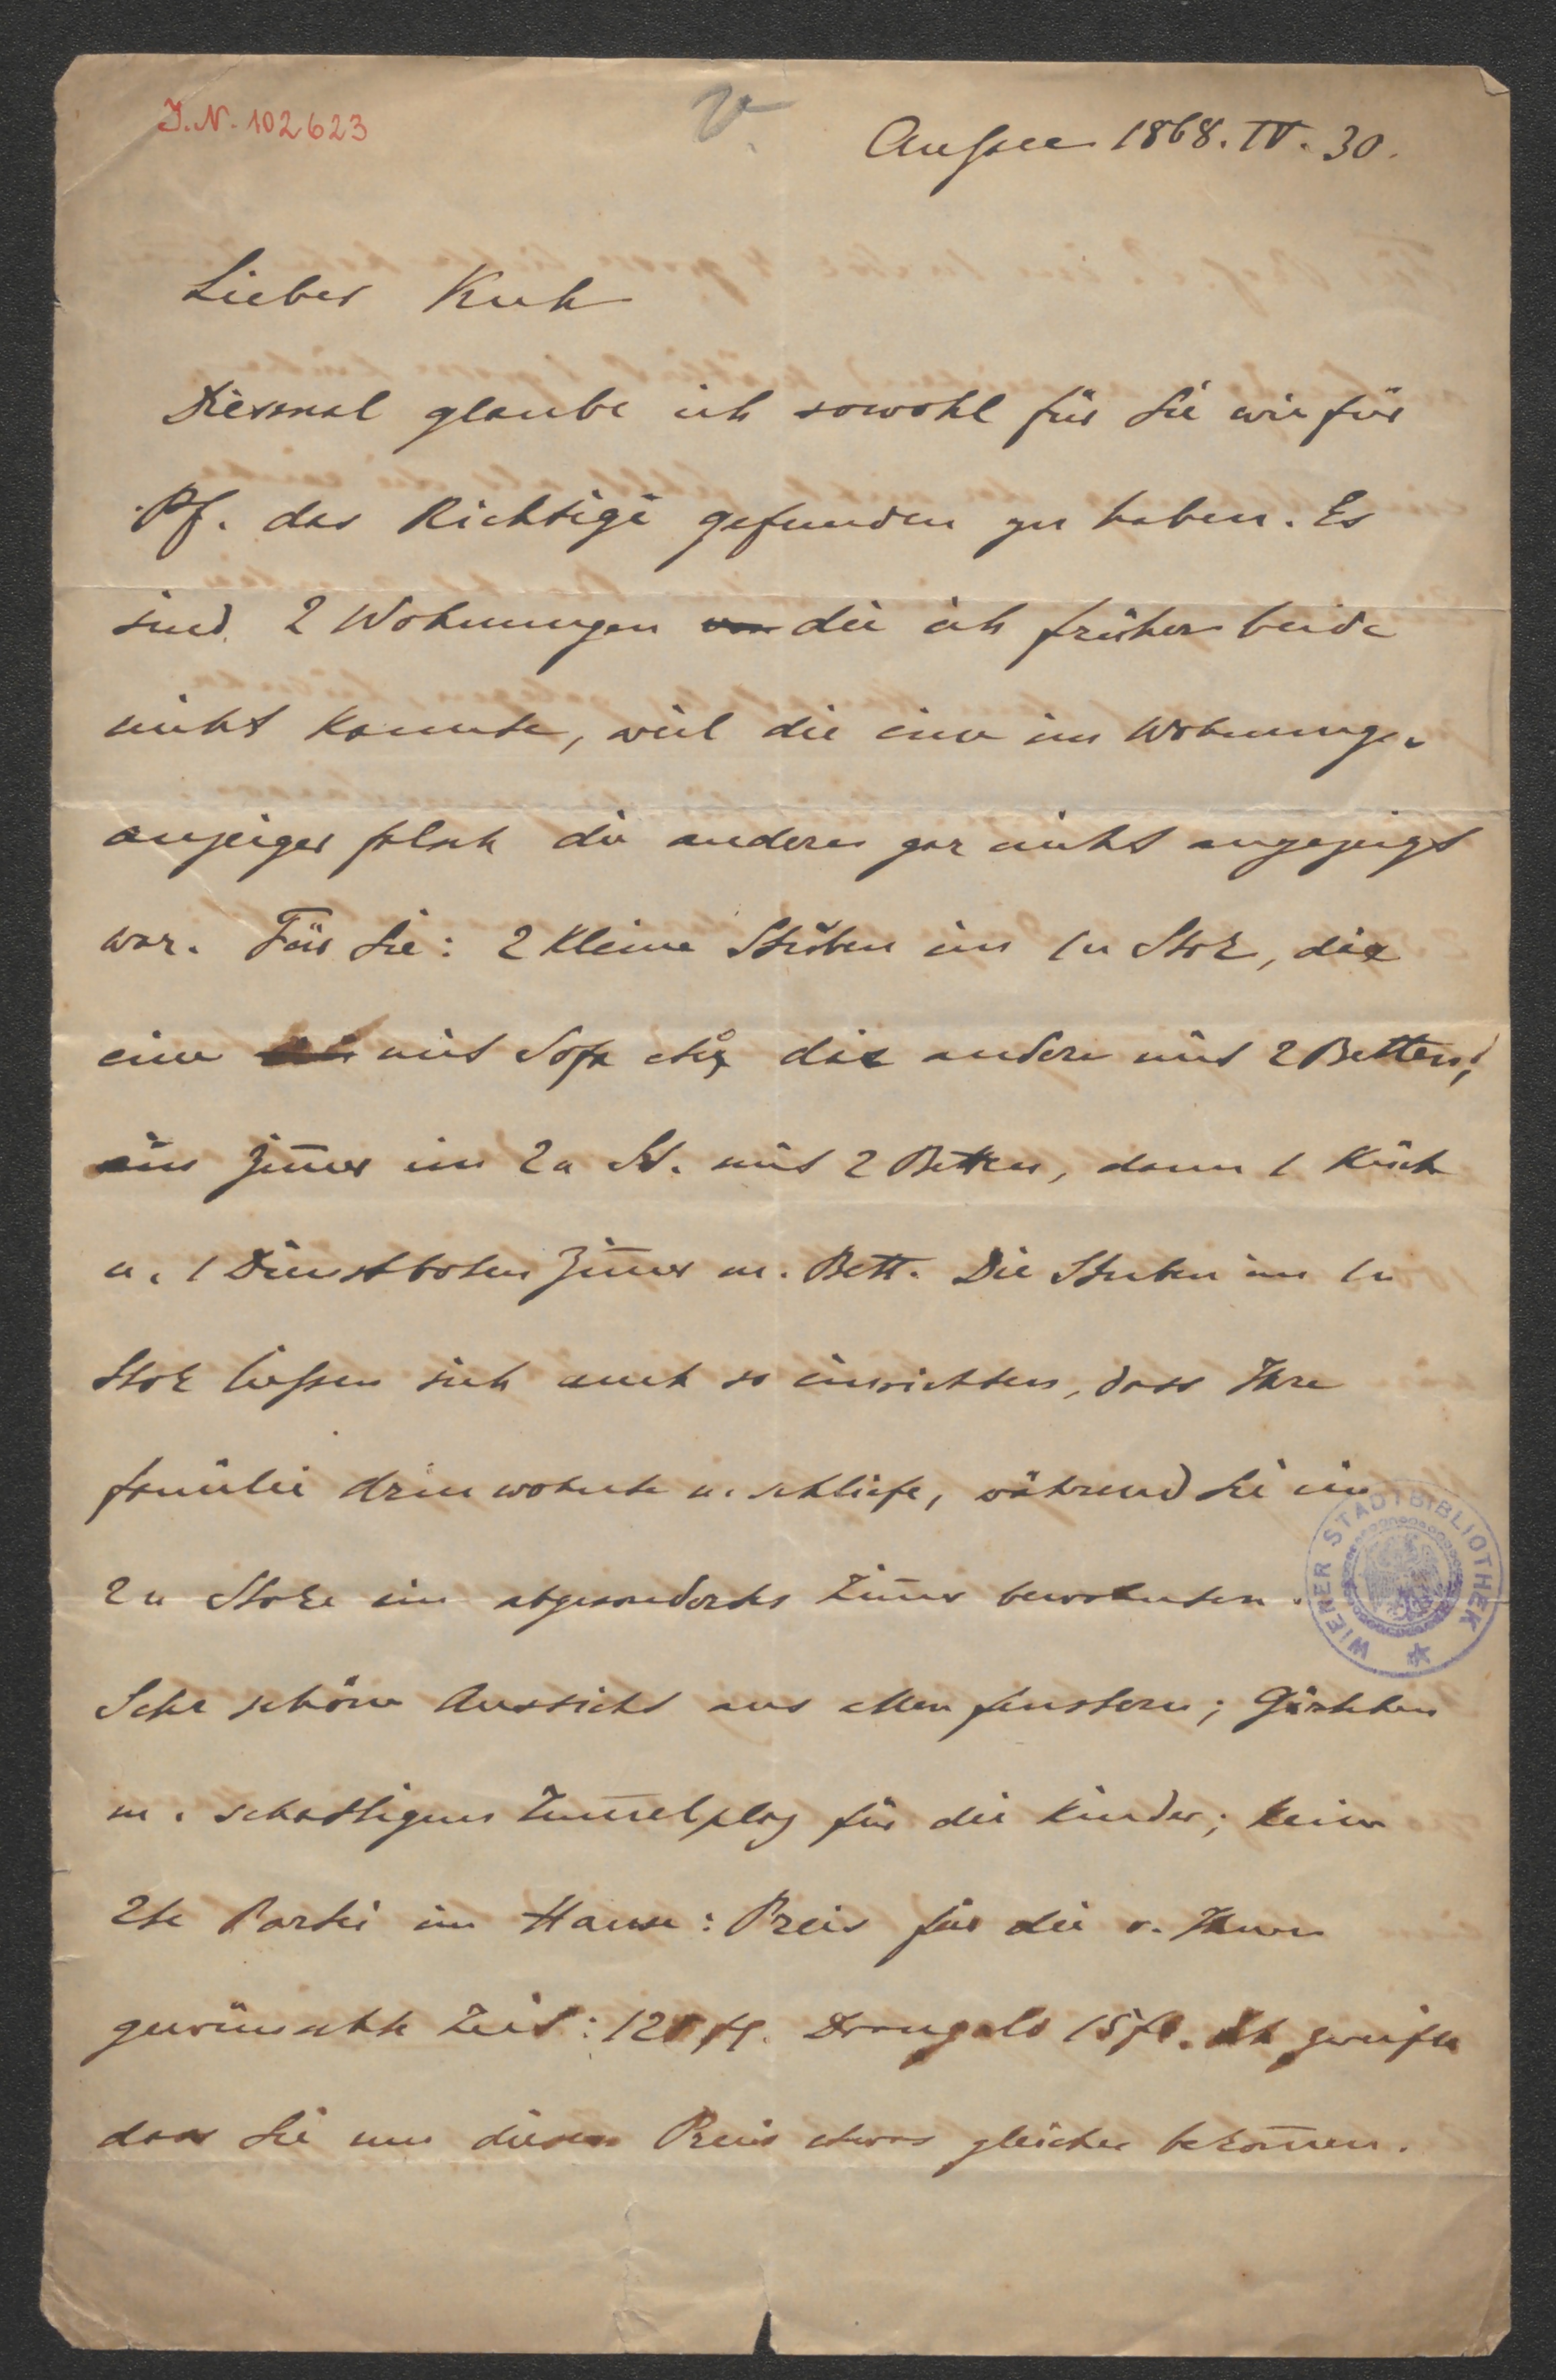 I.N. 102623
Aussee 1868. IV. 30.
Lieber Kuh
Diesmal glaube ich sowohl für Sie wie für
Pf. das Richtige gefunden zu haben. Es
sind 2 Wohnungen die ich früher beide
nicht kannte, weil die eine im Wohnungs-
anzeiger falsch die andere gar nicht angezeigt
war. Für Sie: 2 kleine Stuben im 1n Stok, die
eine mit Sofa etc die andere mit 2 Betten;
ein Zim̄er im 2n St. mit 2 Betten, dann 1 Küche
u. 1 Dienstboten Zim̄er m. Bett. Die Stuben im 1n
Stok liessen sich auch so einrichten, dass Ihre
Familie drin wohnte u. schliefe, während Sie im
2n Stoke ein abgesondertes Zim̄er bewohnten.
Sehr schöne Aussicht aus allen Fenstern; Gärtchen
m. schattigem Tum̄elplaz für die Kinder; keine
2te Partei im Hause: Preis für die v. Ihnen
gewünschte Zeit: 120 fl. Drangeld 15 fl. Ich zweifle
dass Sie um diesen Preis etwas gleiches bekom̄en.
WIENER STADTBIBLIOTHEK